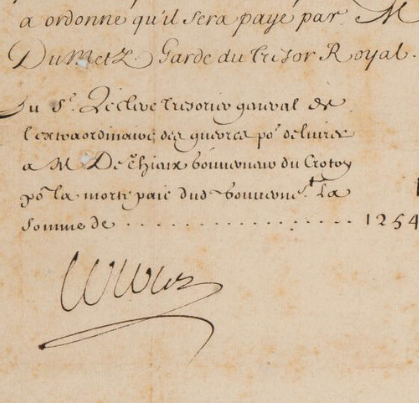 a ordonné qu'il sera payé par M
Du Metz Garde du Tresor Royal.
Au Sr. Leclerc Tresorier general de
l'extraordinaire des guerres pr. delivrer
a M De Thiaix Gouverneur du Crotoy
pr. la morte paie dud. Gouvernet. La
somme de . . . . . . . . . . . . . . . . . . 1254